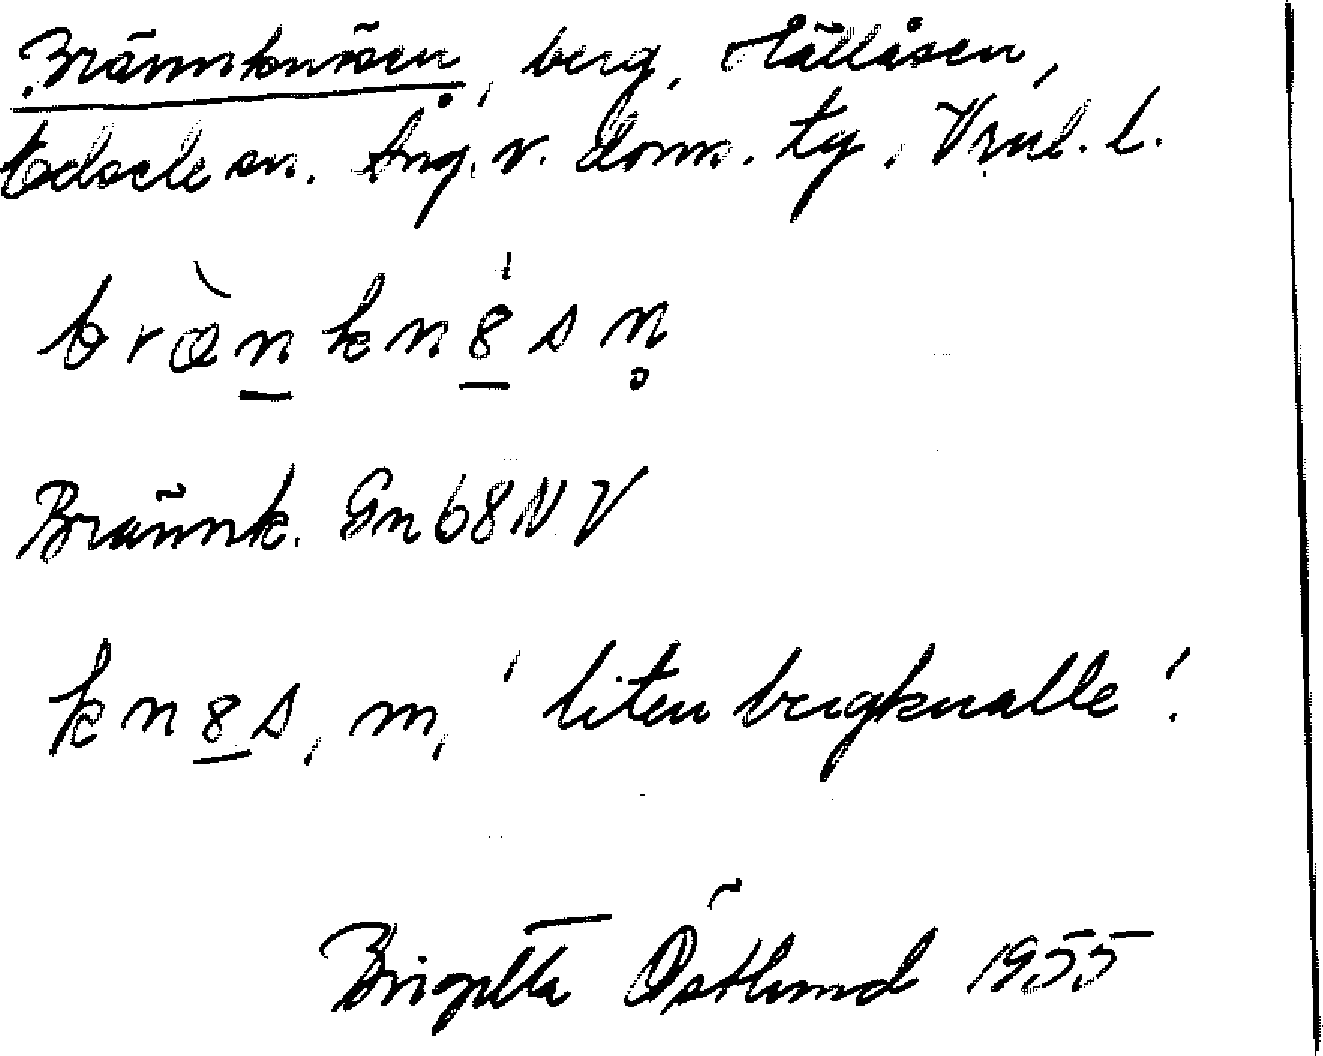 Brännknösen, berg, Hållåsen,
Edsele sn. Ång. v. doms. tg, Vnl. l.
bræ̀nknȣ́sn̥
Brännk. Gn 68 NV
knȣs, m, 'liten bergknalle'.
Brigitta Östlund 1955